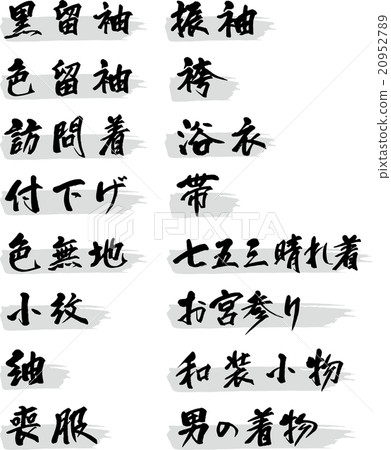 黒留袖
色留袖
訪問着
付下げ
色無地
小紋
紬
喪服
振袖
袴
浴衣
帯
七五三晴れ着
お宮参り
和装小物
男の着物
PIXTA
20952789